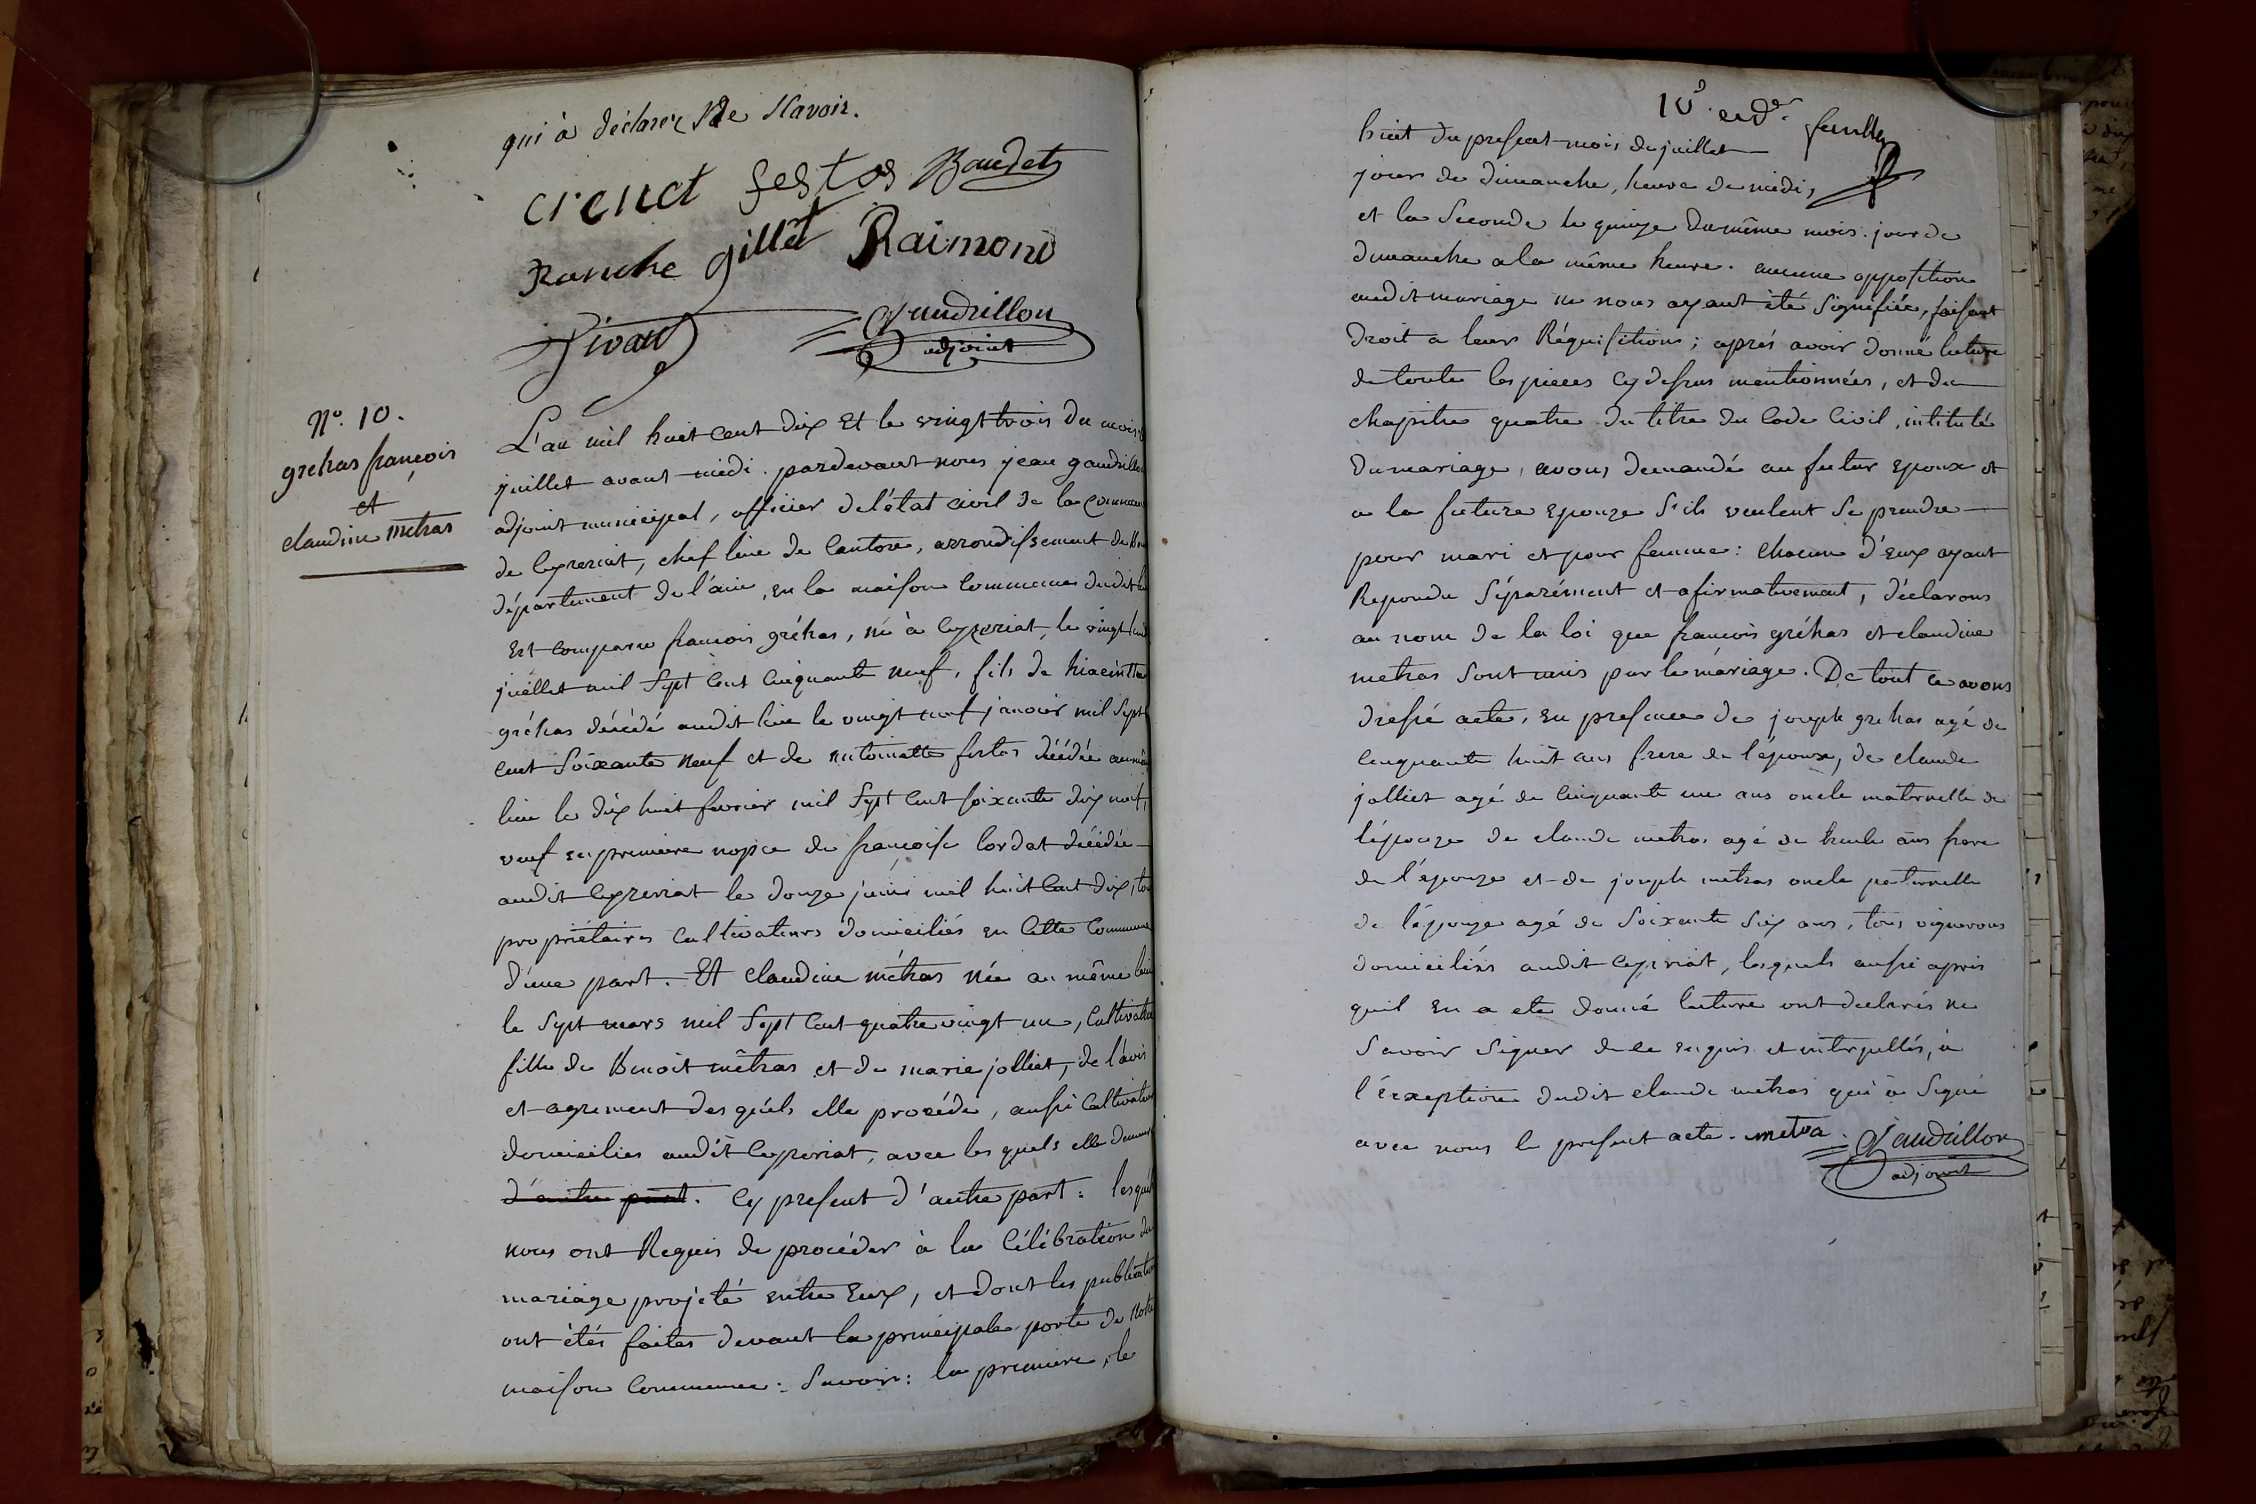 qui à déclarer ne Savoir.
crenet festas Baudet
Ranche gillet Raimond
Sivan Gaudrillon
adjoint
No. 10.
gréhas françois
et
claudine métras
L'an mil huit cent dix Et le vingt trois du mois
juillet avant midi. pardevant nous jean gaudrillon
adjoint municipal, officier de l'état civil de la commune
de Ceyzeriat, chef lieu de Canton, arrondissement de
département de l'ain, en la maison commune dudit
Est comparu françois gréhas, né à Ceyzeriat, le vingt
juillet mil sept cent cinquante neuf, fils de hiacinthe
gréhas décédé audit lieu le vingt neuf janvier mil sept
cent soixante neuf et de antoinette festas décédée au
lieu le dix huit fevrier mil sept cent soixante dix neuf,
veuf en premiere nopce de françoise Cordat décédée
audit Ceyzeriat le douze juin mil huit cent dix,
propriétaires cultivateurs domiciliés en Cette Commune
d'une part. Et claudine métras née au même lieu
le sept mars mil sept cent quatre vingt un, Cultivatrice
fille de Benoit métras et de marie jolliet, de l'avis
et agrement des quels elle procéde, aussi Cultivateurs
domiciliés audit Ceyzeriat, avec les quels elle demeure
d'autre part. Cy present d'autre part: lesquels
nous ont Requis de procéder à la Célébration du
mariage projeté entre Eux, et dont les publications
ont étés faites devant la principale porte de Notre
maison Commune: Savoir: la premiere, le
10e. feuillet
huit du present mois de juillet
jour de dimanche, heure de midi,
et la Seconde le quinze du même mois. jour de
dimanche a la même heure. aucune opposition
audit mariage ne nous ayant été Signifiée, faisant
droit a leur Réquisitions; aprés avoir donné lecture
de toute les pieces Cy dessus mentionnées, et du
chapitre quatre du titre du Code Civil, intitulé
Du mariage, avons demandé au futur epoux et
a la future epouze S'ils veulent Se prendre
pour mari et pour femme: Chacun d'Eux ayant
Repondu Séparément et afirmativement, déclarons
au nom de la loi que françois gréhas et claudine
metras Sont unis par le mariage. De tout ce avons
dressé acte, en presence de joseph grehas agé de
cinquante huit ans frere de l'époux, de claude
jolliet agé de Cinquante un ans oncle maternelle de
l'épouze de claude metras agé de trente ans frere
de l'épouze et de joseph metras oncle paternelle
de l'épouze agé de Soixante Six ans, tous vignerons
domiciliés audit Ceyzeriat, lesquels aussi apris
quil en a ete donné lecture ont declarés ne
Savoir Signer de ce enquis et interpellés, à
l'éxeption dudit claude metras qui à Signé
avec nous le present acte. metra. Gaudrillon
adjoint